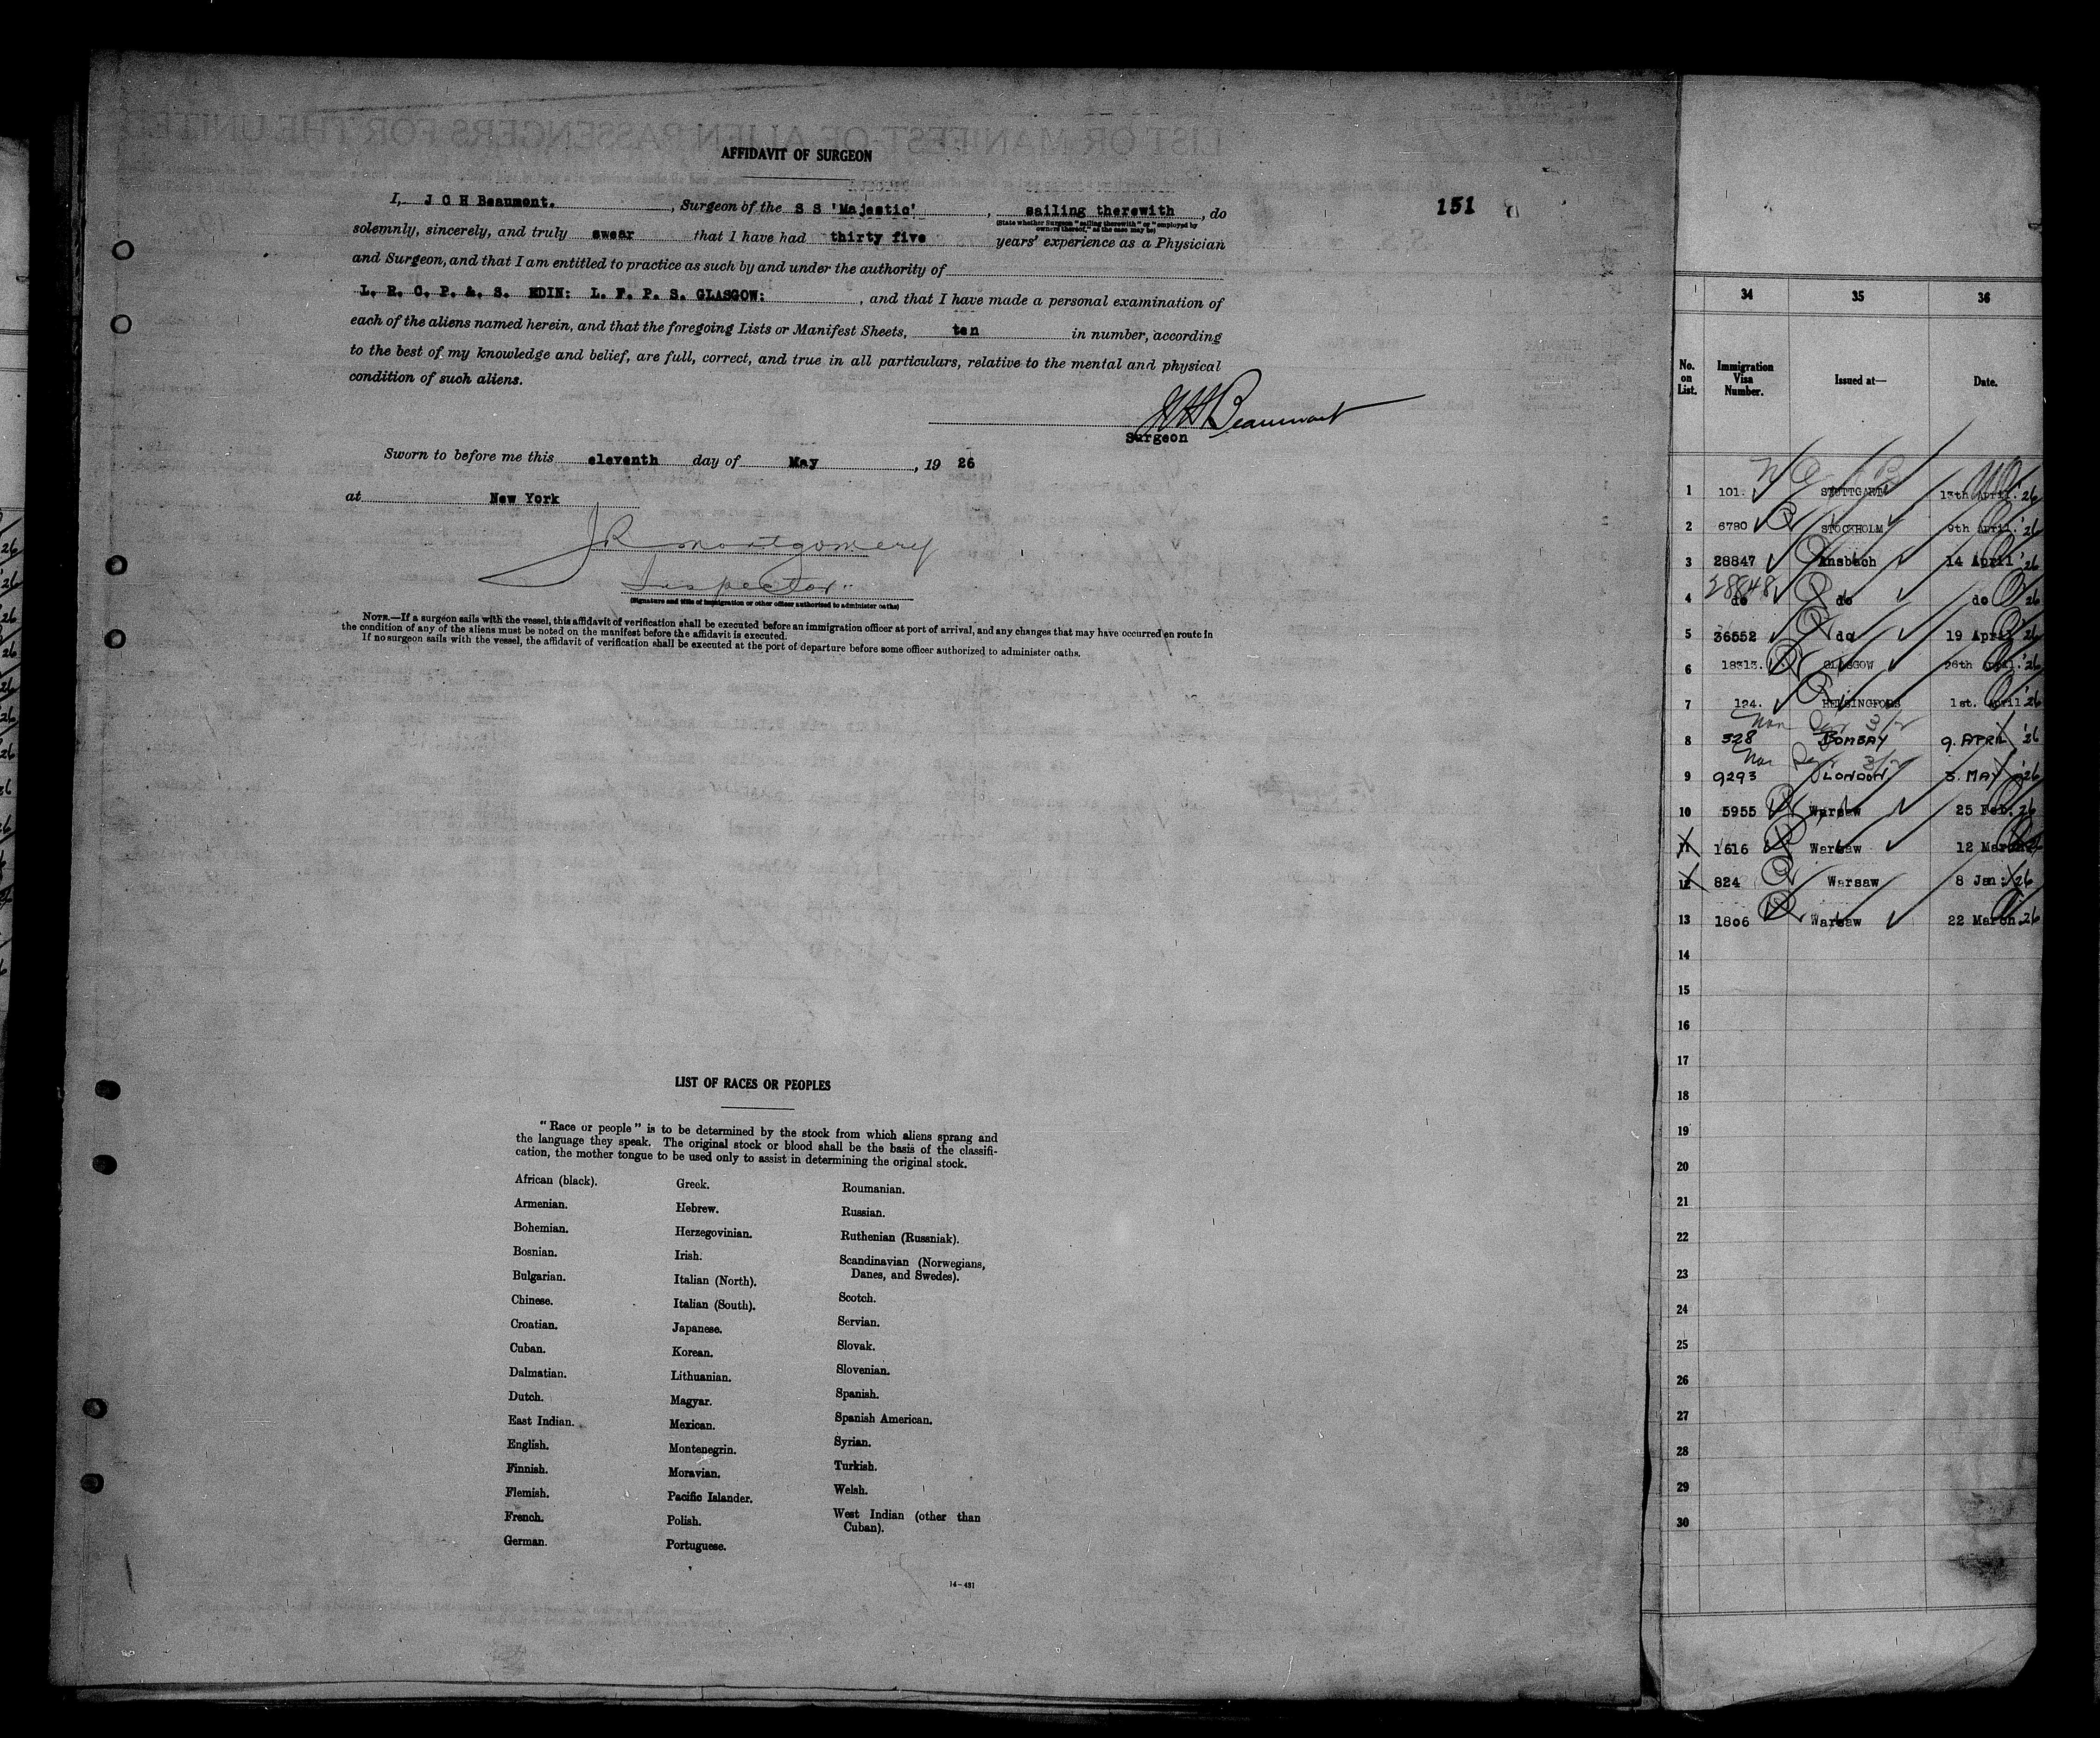 AFFIDAVIT OF SURGEON
151
I, J C H Beaumont. , Surgeon of the S S 'Majestic' , sailing therewith , do
(State whether Surgeon "sailing therewith" or "employed by owners thereof," as the case may be)
solemnly, sincerely, and truly swear that I have had thirty five years' experience as a Physician
and Surgeon, and that I am entitled to practice as such by and under the authority of
L. R. C. P. & S. EDIN: L. F. P. S. GLASGOW: , and that I have made a personal examination of
each of the aliens named herein, and that the foregoing Lists or Manifest Sheets, ten in number, according
to the best of my knowledge and belief, are full, correct, and true in all particulars, relative to the mental and physical
condition of such aliens.
Beaumont
Surgeon
Sworn to before me this eleventh day of May , 19 26
at New York
J R Montgomery
Inspector
(Signature and title of immigration or other officer authorized to administer oaths)
NOTE.—If a surgeon sails with the vessel, this affidavit of verification shall be executed before an immigration officer at port of arrival, and any changes that may have occurred en route in
the condition of any of the aliens must be noted on the manifest before the affidavit is executed.
If no surgeon sails with the vessel, the affidavit of verification shall be executed at the port of departure before some officer authorized to administer oaths.
LIST OF RACES OR PEOPLES
"Race or people" is to be determined by the stock from which aliens sprang and
the language they speak. The original stock or blood shall be the basis of the classifi-
cation, the mother tongue to be used only to assist in determining the original stock.
African (black).
Armenian.
Bohemian.
Bosnian.
Bulgarian.
Chinese.
Croatian.
Cuban.
Dalmatian.
Dutch.
East Indian.
English.
Finnish.
Flemish.
French.
German.
Greek.
Hebrew.
Herzegovinian.
Irish.
Italian (North).
Italian (South).
Japanese.
Korean.
Lithuanian.
Magyar.
Mexican.
Montenegrin.
Moravian.
Pacific Islander.
Polish.
Portuguese.
Roumanian.
Russian.
Ruthenian (Russniak).
Scandinavian (Norwegians,
Danes, and Swedes).
Scotch.
Servian.
Slovak.
Slovenian.
Spanish.
Spanish American.
Syrian.
Turkish.
Welsh.
West Indian (other than
Cuban).
14-431
34 35 36
No. on List. Immigration Visa Number. Issued at— Date.
1 101. STUTTGART 13th April. '26
2 6780 STOCKHOLM 9th April. '26
3 28847 Ansbach 14 April '26
28848
4 do do do 26
5 36552 do 19 April 26
6 18313. GLASGOW 26th April. '26
7 124. HELSINGFORS 1st. April 26
8 328 BOMBAY 9. APRIL '26
9 9293 LONDON. 3. MAY '26
10 5955 Warsaw 25 Feb. 26
11 1616 Warsaw 12 March
12 824 Warsaw 8 Jan: 26
13 1806 Warsaw 22 March 26
14
15
16
17
18
19
20
21
22
23
24
25
26
27
28
29
30